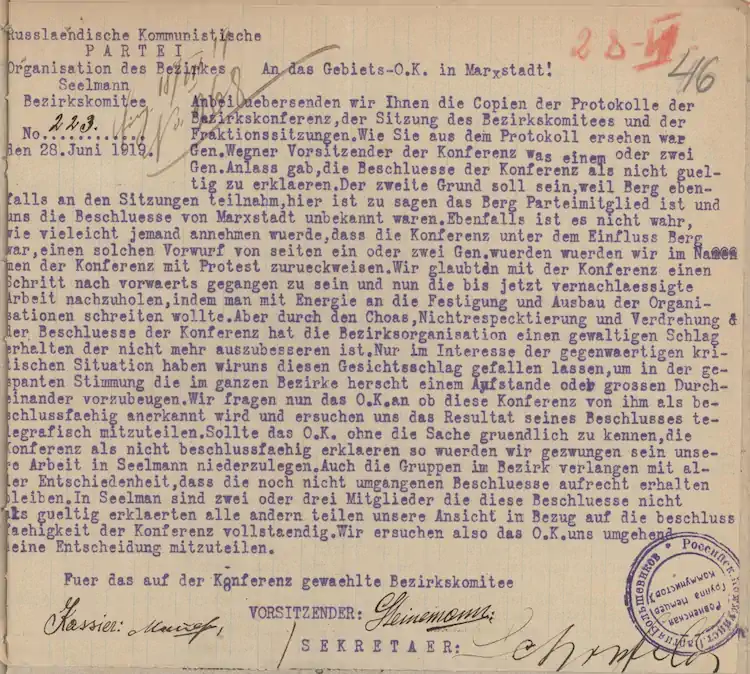 Russlaendische Kommunistische
PARTEI
Organisation des Bezirkes
Seelmann
Bezirkskomitee
No. 223.
den 28. Juni 1919.
28-VI
46
An das Gebiets-O.K. in Marxstadt!
Anbei uebersenden wir Ihnen die Copien der Protokolle der
Bezirkskonferenz,der Sitzung des Bezirkskomitees und der
Fraktionssitzungen.Wie Sie aus dem Protokoll ersehen war
Gen.Wegner Vorsitzender der Konferenz was einem oder zwei
Gen.Anlass gab,die Beschluesse der Konferenz als nicht guel-
tig zu erklaeren.Der zweite Grund soll sein,weil Berg eben-
falls an den Sitzungen teilnahm,hier ist zu sagen das Berg Parteimitglied ist und
uns die Beschluesse von Marxstadt unbekannt waren.Ebenfalls ist es nicht wahr,
wie vieleicht jemand annehmen wuerde,dass die Konferenz unter dem Einfluss Berg
war,einen solchen Vorwurf von seiten ein oder zwei Gen.wuerden wuerden wir im Namen
men der Konferenz mit Protest zurueckweisen.Wir glaubten mit der Konferenz einen
Schritt nach vorwaerts gegangen zu sein und nun die bis jetzt vernachlaessigte
Arbeit nachzuholen,indem man mit Energie an die Festigung und Ausbau der Organi-
sationen schreiten wollte.Aber durch den Choas,Nichtrespecktierung und Verdrehung &
der Beschluesse der Konferenz hat die Bezirksorganisation einen gewaltigen Schlag
erhalten der nicht mehr auszubesseren ist.Nur im Interesse der gegenwaertigen kri-
tischen Situation haben wiruns diesen Gesichtsschlag gefallen lassen,um in der ge-
spanten Stimmung die im ganzen Bezirke herscht einem Aufstande oder grossen Durch-
einander vorzubeugen.Wir fragen nun das O.K.an ob diese Konferenz von ihm als be-
schlussfaehig anerkannt wird und ersuchen uns das Resultat seines Beschlusses te-
legrafisch mitzuteilen.Sollte das O.K. ohne die Sache gruendlich zu kennen,die
Konferenz als nicht beschlussfaehig erklaeren so wuerden wir gezwungen sein unse-
re Arbeit in Seelmann niederzulegen.Auch die Gruppen im Bezirk verlangen mit al-
ler Entschiedenheit,dass die noch nicht umgangenen Beschluesse aufrecht erhalten
bleiben.In Seelman sind zwei oder drei Mitglieder die diese Beschluesse nicht
als gueltig erklaerten alle andern teilen unsere Ansicht in Bezug auf die beschluss
faehigkeit der Konferenz vollstaendig.Wir ersuchen also das O.K.uns umgehend
seine Entscheidung mitzuteilen.
Fuer das auf der Konferenz gewaehlte Bezirkskomitee
Kassier:
VORSITZENDER: Steinemann:
SEKRETAER: